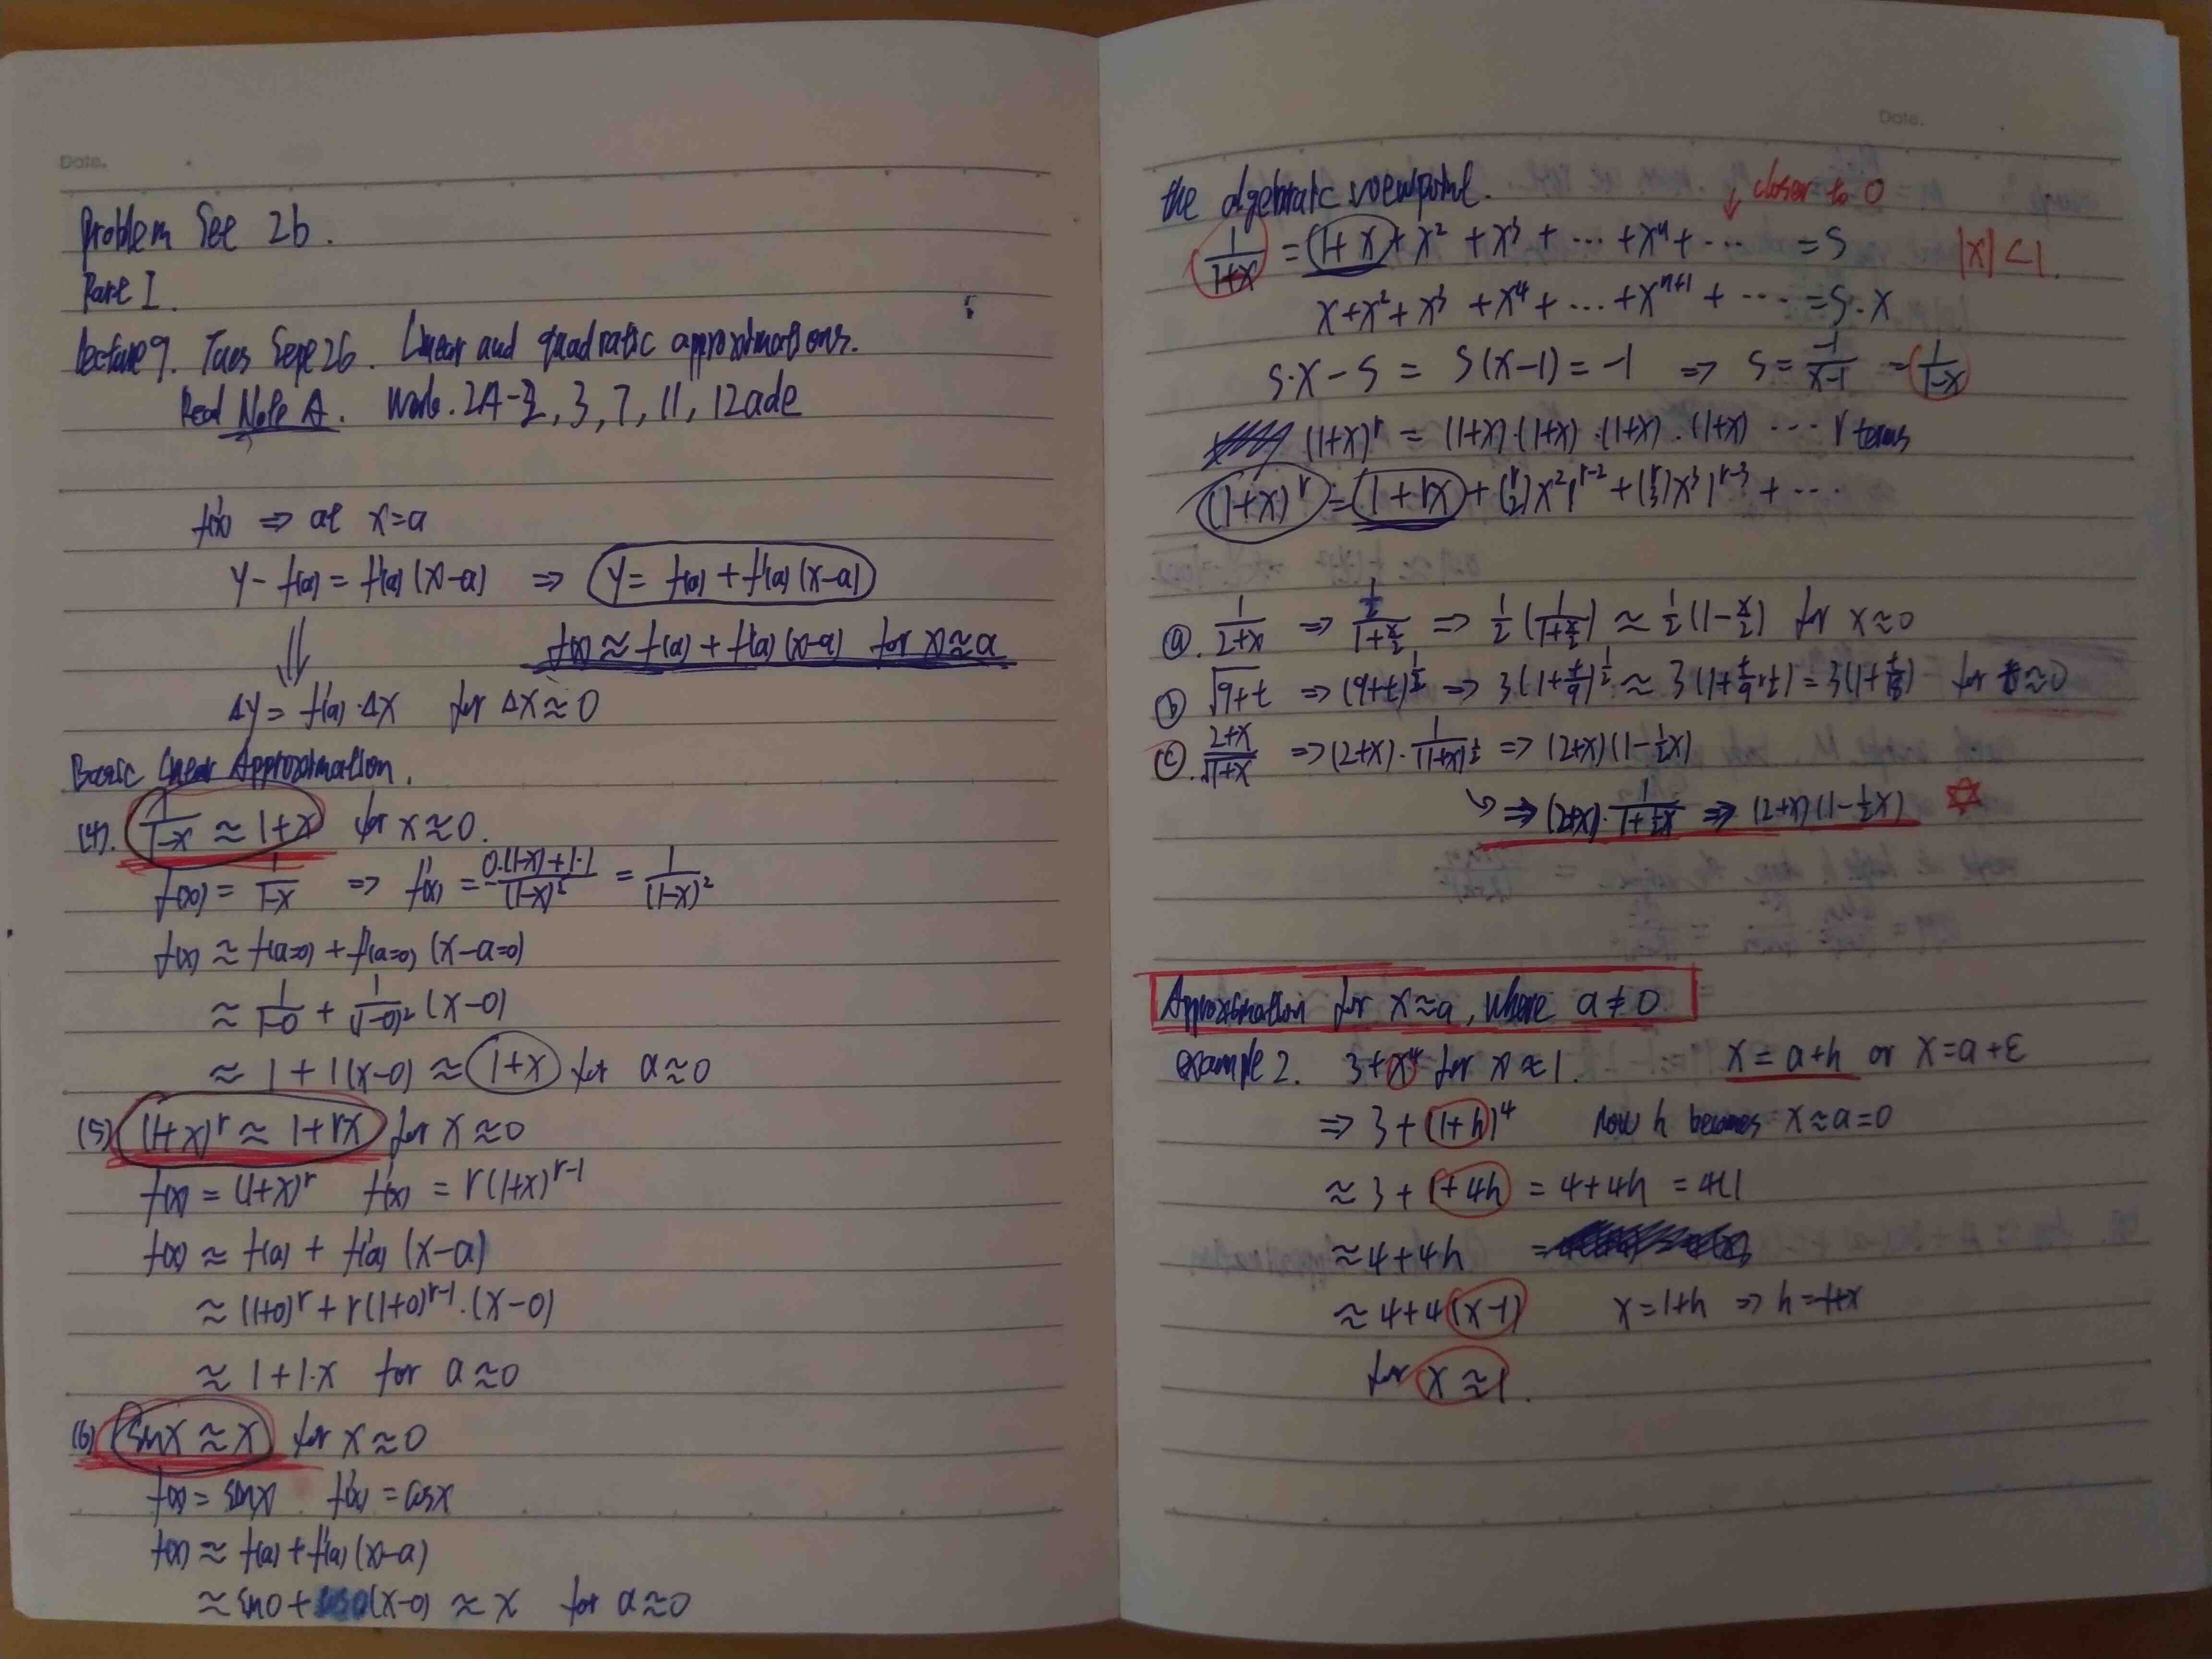 Date.
Problem Set 2b.
Part I.
Lecture 9. Tues Sept 26. Linear and quadratic approximations.
Read Note A. Work. 2A-2, 3, 7, 11, 12ade
f(x) ⇒ at x=a
y - f(a) = f'(a)(x-a) ⇒ y = f(a) + f'(a)(x-a)
f(x) ≈ f(a) + f'(a)(x-a) for x≈a
⇓
Δy = f'(a)·Δx for Δx≈0
Basic Linear Approximation.
(4). 1/(1-x) ≈ 1+x for x≈0.
f(x) = 1/(1-x) ⇒ f'(x) = (0·(1-x)+1·1)/(1-x)² = 1/(1-x)²
f(x) ≈ f(a=0) + f'(a=0)(x-a=0)
≈ 1/(1-0) + 1/(1-0)² (x-0)
≈ 1 + 1(x-0) ≈ 1+x for a≈0
(5) (1+x)^r ≈ 1+rx for x≈0
f(x) = (1+x)^r f'(x) = r(1+x)^(r-1)
f(x) ≈ f(a) + f'(a)(x-a)
≈ (1+0)^r + r(1+0)^(r-1)·(x-0)
≈ 1+1·x for a≈0
(6) sinx ≈ x for x≈0
f(x) = sinx f'(x) = cosx
f(x) ≈ f(a) + f'(a)(x-a)
≈ sin0 + cos0(x-0) ≈ x for a≈0
Date.
the algebraic viewpoint. ↓ closer to 0
1/(1+x) = (1+x) + x² + x³ + ··· + xⁿ + ··· = S |x|<1.
x + x² + x³ + x⁴ + ··· + x^(n+1) + ··· = S·x
S·x - S = S(x-1) = -1 ⇒ S = -1/(x-1) = 1/(1-x)
(1+x)^r = (1+x)·(1+x)·(1+x)·(1+x) ··· r terms
(1+x)^r = 1+rx + (r 2)x²1^(r-2) + (r 3)x³1^(r-3) + ···
ⓐ. 1/(2+x) ⇒ (1/2)/(1+x/2) ⇒ 1/2 (1/(1+x/2)) ≈ 1/2 (1-x/2) for x≈0
ⓑ √(9+t) ⇒ (9+t)^(1/2) ⇒ 3(1+t/9)^(1/2) ≈ 3(1+t/9·1/2) = 3(1+t/18) for t≈0
ⓒ. (2+x)/√(1+x) ⇒ (2+x)·1/(1+x)^(1/2) ⇒ (2+x)(1-1/2x)
↳ ⇒ (2+x)·1/(1+1/2x) ⇒ (2+x)(1-1/2x) ✡
Approximation for x≈a, where a≠0
example 2. 3+x⁴ for x≈1. x=a+h or x=a+ε
⇒ 3+(1+h)⁴ Now h becomes x≈a=0
≈ 3+(1+4h) = 4+4h
≈ 4+4h
≈ 4+4(x-1) x=1+h ⇒ h=-1+x
for x≈1.